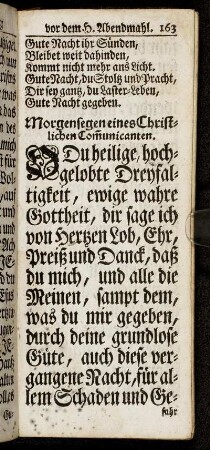 vor dem H. Abendmahl. 163
Gute Nacht ihr Sünden,
Bleibet weit dahinden,
Kommt nicht mehr ans Licht.
Gute Nacht, du Stoltz und Pracht,
Dir sey gantz, du Laster-Leben,
Gute Nacht gegeben.
Morgensegen eines Christ-
lichen Com̃unicanten.
O Du heilige, hoch-
gelobte Dreyfal-
tigkeit, ewige wahre
Gottheit, dir sage ich
von Hertzen Lob, Ehr,
Preiß und Danck, daß
du mich, und alle die
Meinen, sampt dem,
was du mir gegeben,
durch deine grundlose
Güte, auch diese ver-
gangene Nacht, für al-
lem Schaden und Ge-
fahr